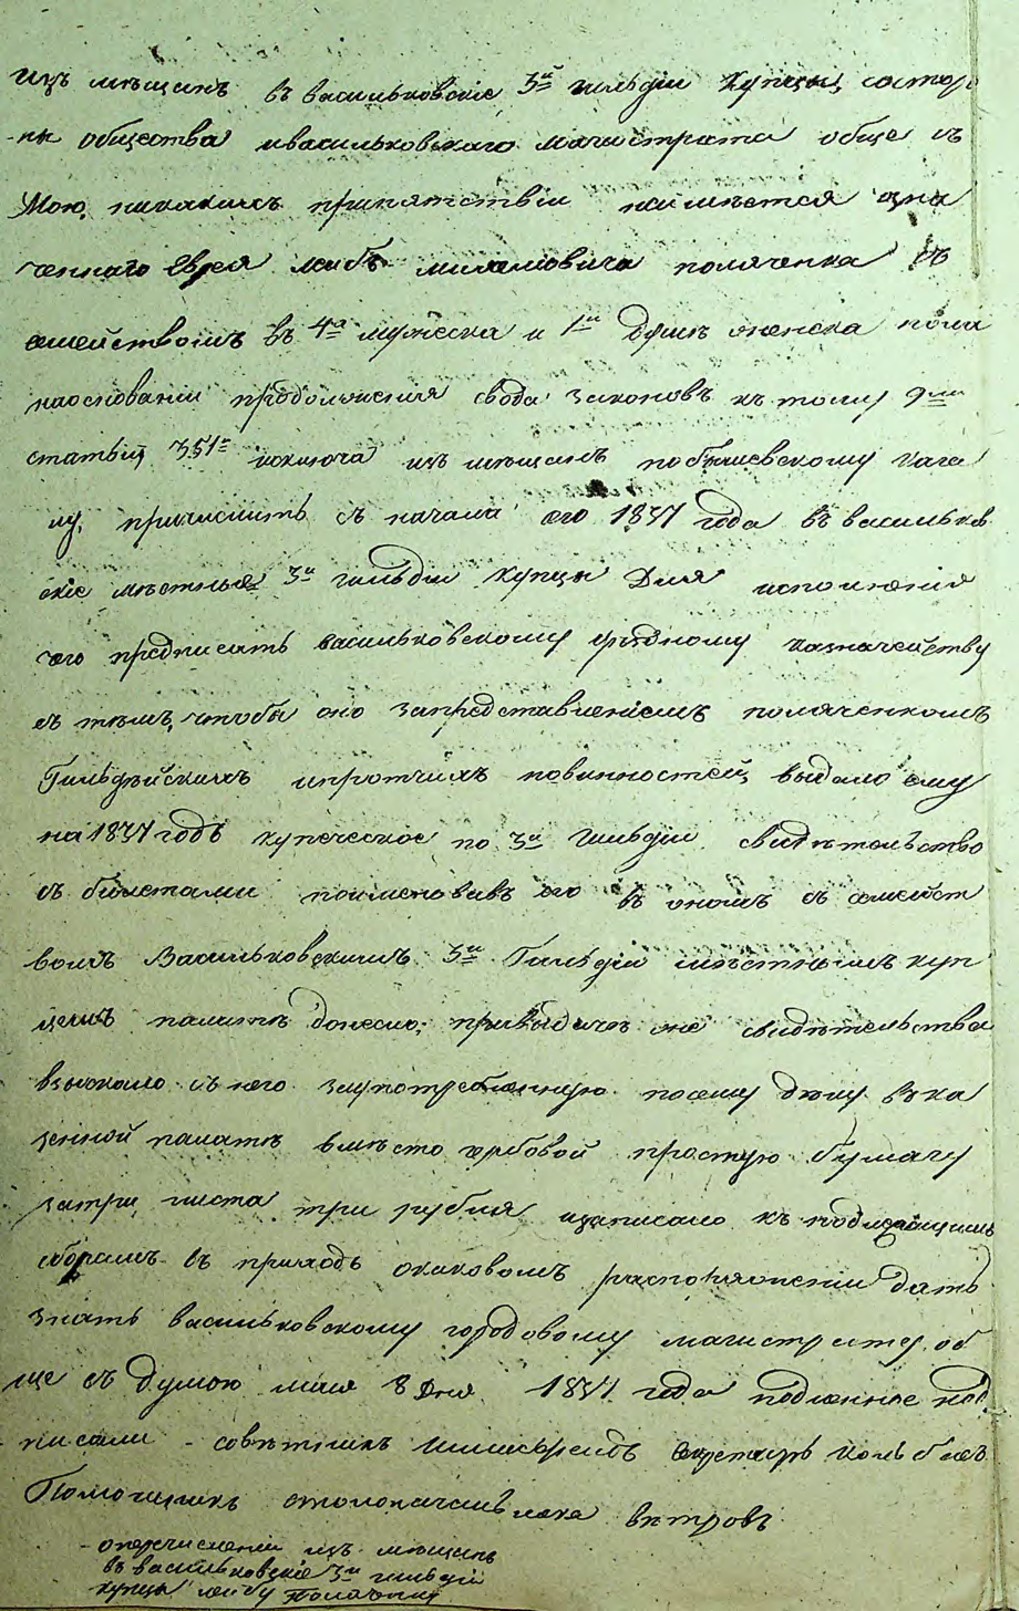 изъ мѣщанъ въ васильковскіе 3й гильдіи купцы, со сторо
ны общества ивасильковскаго магистрата обще съ
Мою, никакихъ препятствіи неимѣется озна
ченнаго Еврея Лейбъ поляченка съ
семействомъ въ 4а мужеска и 1й душъ женска пола
наоснованіи продолженія свода законовъ къ тому 9му
статьи, 351й исключа изъ мѣщанъ по кага
лу, причислить съ начала его 1837 года въ васильков
скіе мѣстныя 3й гильдіи купцы Для исполненія
чего предписать васильковскому уѣздному казначейству
съ тѣмъ, чтобы оно запредставленіемъ поляченкомъ
Гильдѣйскихъ ипротчихъ повинностей, выдало ему
на 1837 годъ купеческое по 3й гильдіи свидѣтельство
съ билетами поименовавъ его въ ономъ съ семейст
вомъ Васильковскимъ 3й Гильдіи мѣстнымъ куп
цемъ палатѣ донесло, привыдачѣ оне свидѣтельства
взыскало съ него заупотребленную посему дѣлу въ ка
зенной палатѣ вмѣсто гербовой простую бумагу
затри листа три рубля изаписало къ подлежащимъ
сборамъ въ приходъ окаковомъ распоряженіи дать
знать васильковскому городовому магистрату об
ще съ Думою мая 8 дня 1837 года подлинное под
писали - совѣтникъ Секретарь
Помощникъ столоначальника вѣтровъ
- оперечисленіи изъ мѣщанъ
въ васильковскіе 3й гильдіи
купцы лейбу Поляченка